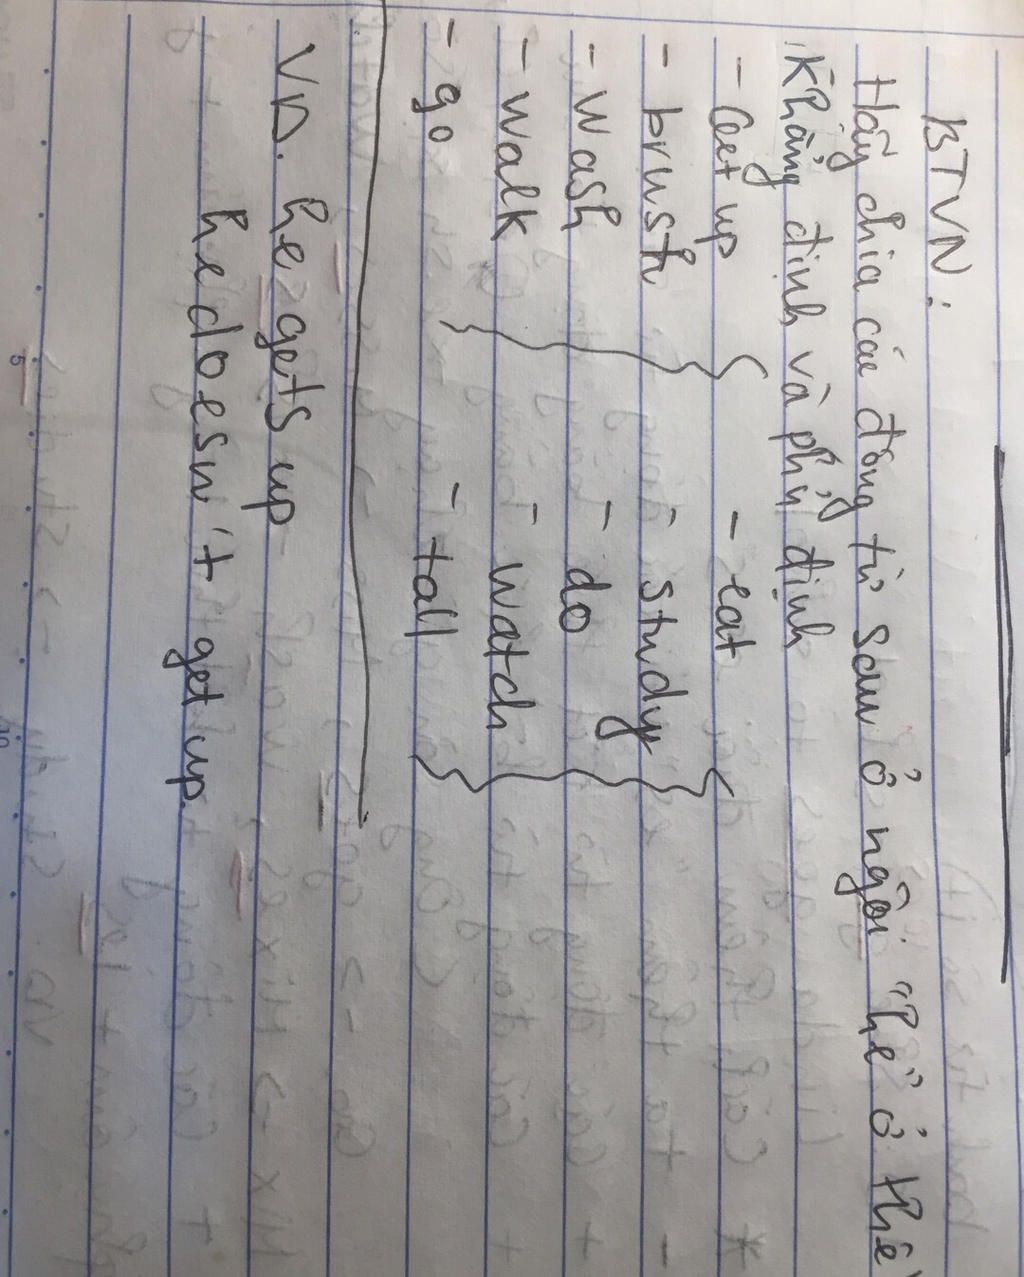 BTVN:
Hãy chia các động từ sau ở ngôi "he" ở thể
khẳng định và phủ định
- Get up - eat
- brush - study
- Wash - do
- walk - watch
- go - tall
VD. he gets up
he doesn't get up.
5
10